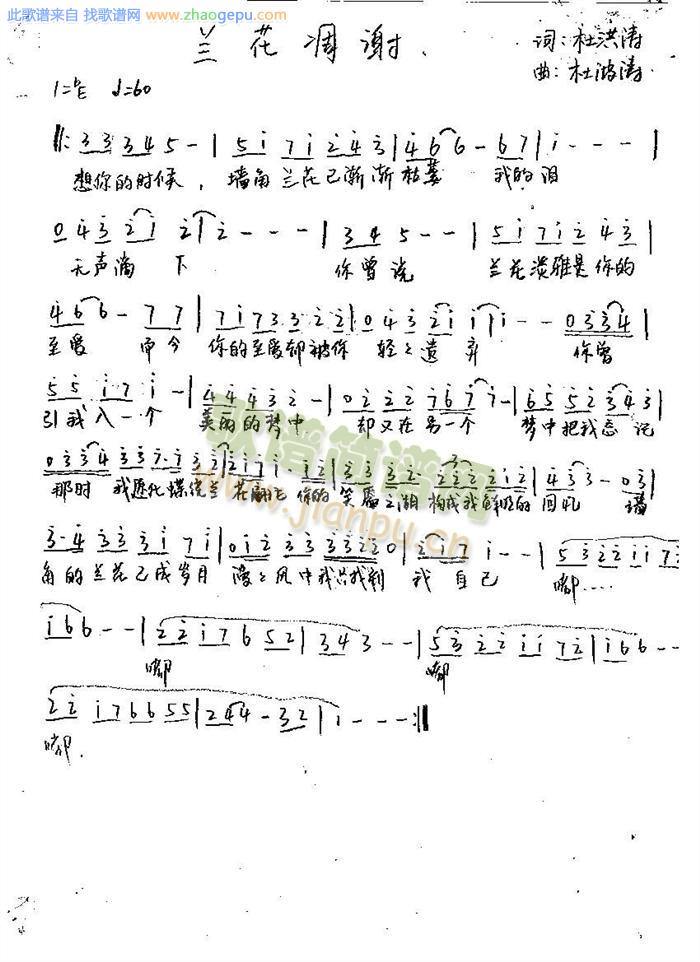 此歌谱来自 找歌谱网
www.zhaogepu.com
兰花凋谢
词:杜洪涛
曲:杜洪涛
1=♭E ♩=60
‖: 3 3 3 4 5 - | 5 i 7 i 2 4 3 | 4 6 6 - 6 7 | i - - - |
想你的时候, 墙角兰花已渐渐枯萎 我的泪
0 4 3 2 i 2 | 2 - - - | 3 4 5 - - | 5 i 7 i 2 4 3 |
无声滴下 你曾说 兰花淡雅是你的
4 6 6 - 7 7 | 7 i 7 3 3 2 2 | 0 4 3 2 i i | i - - 0 3 3 4 |
至爱 而今 你的至爱却被你 轻轻遗弃 你曾
5 5 i 7 i - | 4 4 4 3 2 - | 0 2 2 2 7 6 7 i - | 6 5 5 2 3 4 3 |
引我入一个 美丽的梦中 却又在另一个 梦中把我忘记
0 3 3 4 3 3 7 · i 3 2 | 2 i 7 i · i 2 | 3 3 3 2 2 · 2 2 2 2 i 2 | 4 3 3 - 0 3 |
那时 我愿化蝶绕兰花翩飞 你的笑 我 的回忆 墙
3 · 4 3 3 3 i 7 i | 0 i 2 3 3 3 3 2 2 0 | 2 i 7 i - - | 5 3 2 2 i i 7 2 |
角的兰花已成岁月 漫漫风中我只找到 我自己 嘟....
i 6 6 - - | 2 2 i 7 6 5 2 | 3 4 3 - - | 5 3 2 2 i i 7 2 | i 6 6 - -
嘟 嘟
2 2 i 7 6 6 5 5 | 2 4 4 - 3 2 | i - - - :‖
嘟.
歌谱简谱网
www.jianpu.cn